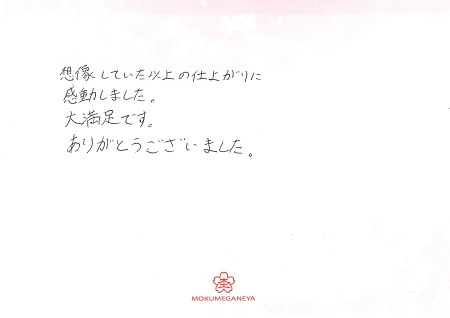 想像していた以上の仕上がりに
感動しました。
大満足です。
ありがとうございました。
MOKUMEGANEYA